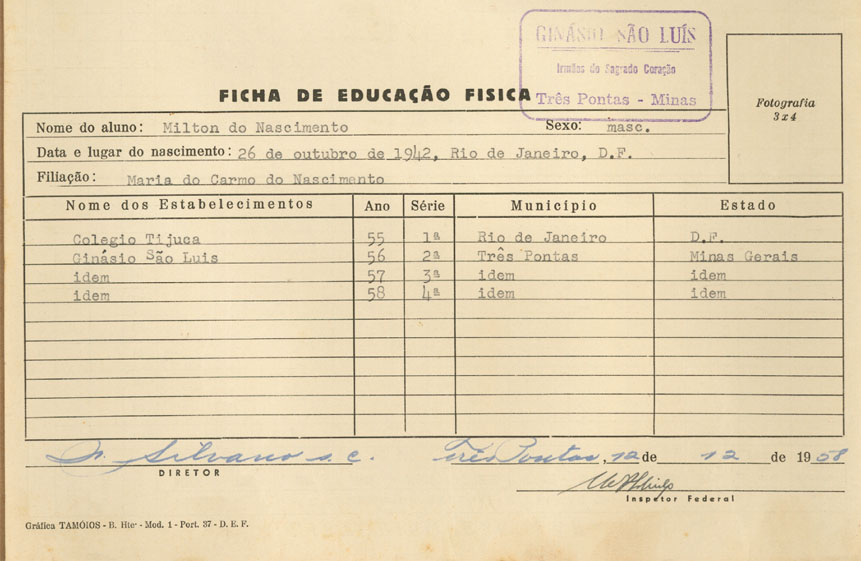 GINÁSIO SÃO LUÍS
Irmãos do Sagrado Coração
Três Pontas - Minas
FICHA DE EDUCAÇÃO FISICA
Fotografia
3x4
Nome do aluno: Milton do Nascimento Sexo: masc.
Data e lugar do nascimento: 26 de outubro de 1942, Rio de Janeiro, D.F.
Filiação: Maria do Carmo do Nascimento
Nome dos Estabelecimentos Ano Série Município Estado
Colegio Tijuca 55 1ª Rio de Janeiro D.F.
Ginásio São Luis 56 2ª Três Pontas Minas Gerais
idem 57 3ª idem idem
idem 58 4ª idem idem
Silvano s.c. Três Pontas, 12 de 12 de 1958
DIRETOR
Inspetor Federal
Gráfica TAMÓIOS - B. Hte - Mod. 1 - Port. 37 - D. E. F.